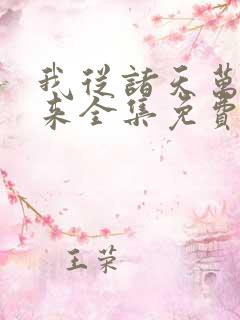 我從諸天萬
來全集免費
王荣